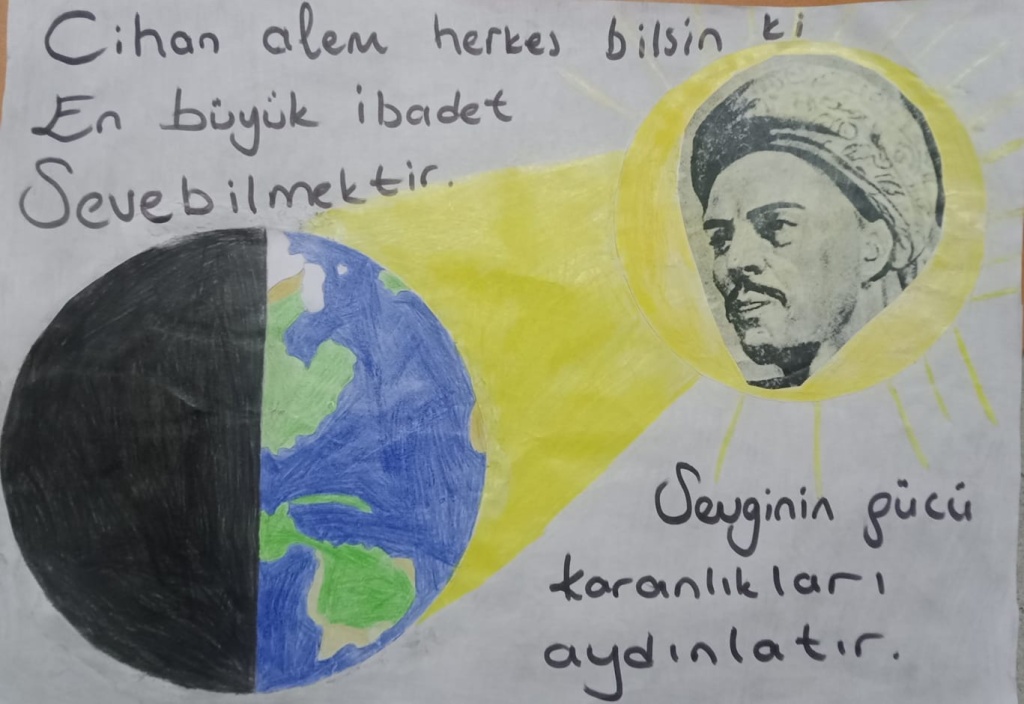 Cihan alem herkes bilsin ki
En büyük ibadet
Sevebilmektir.
Sevginin gücü
karanlıkları
aydınlatır.